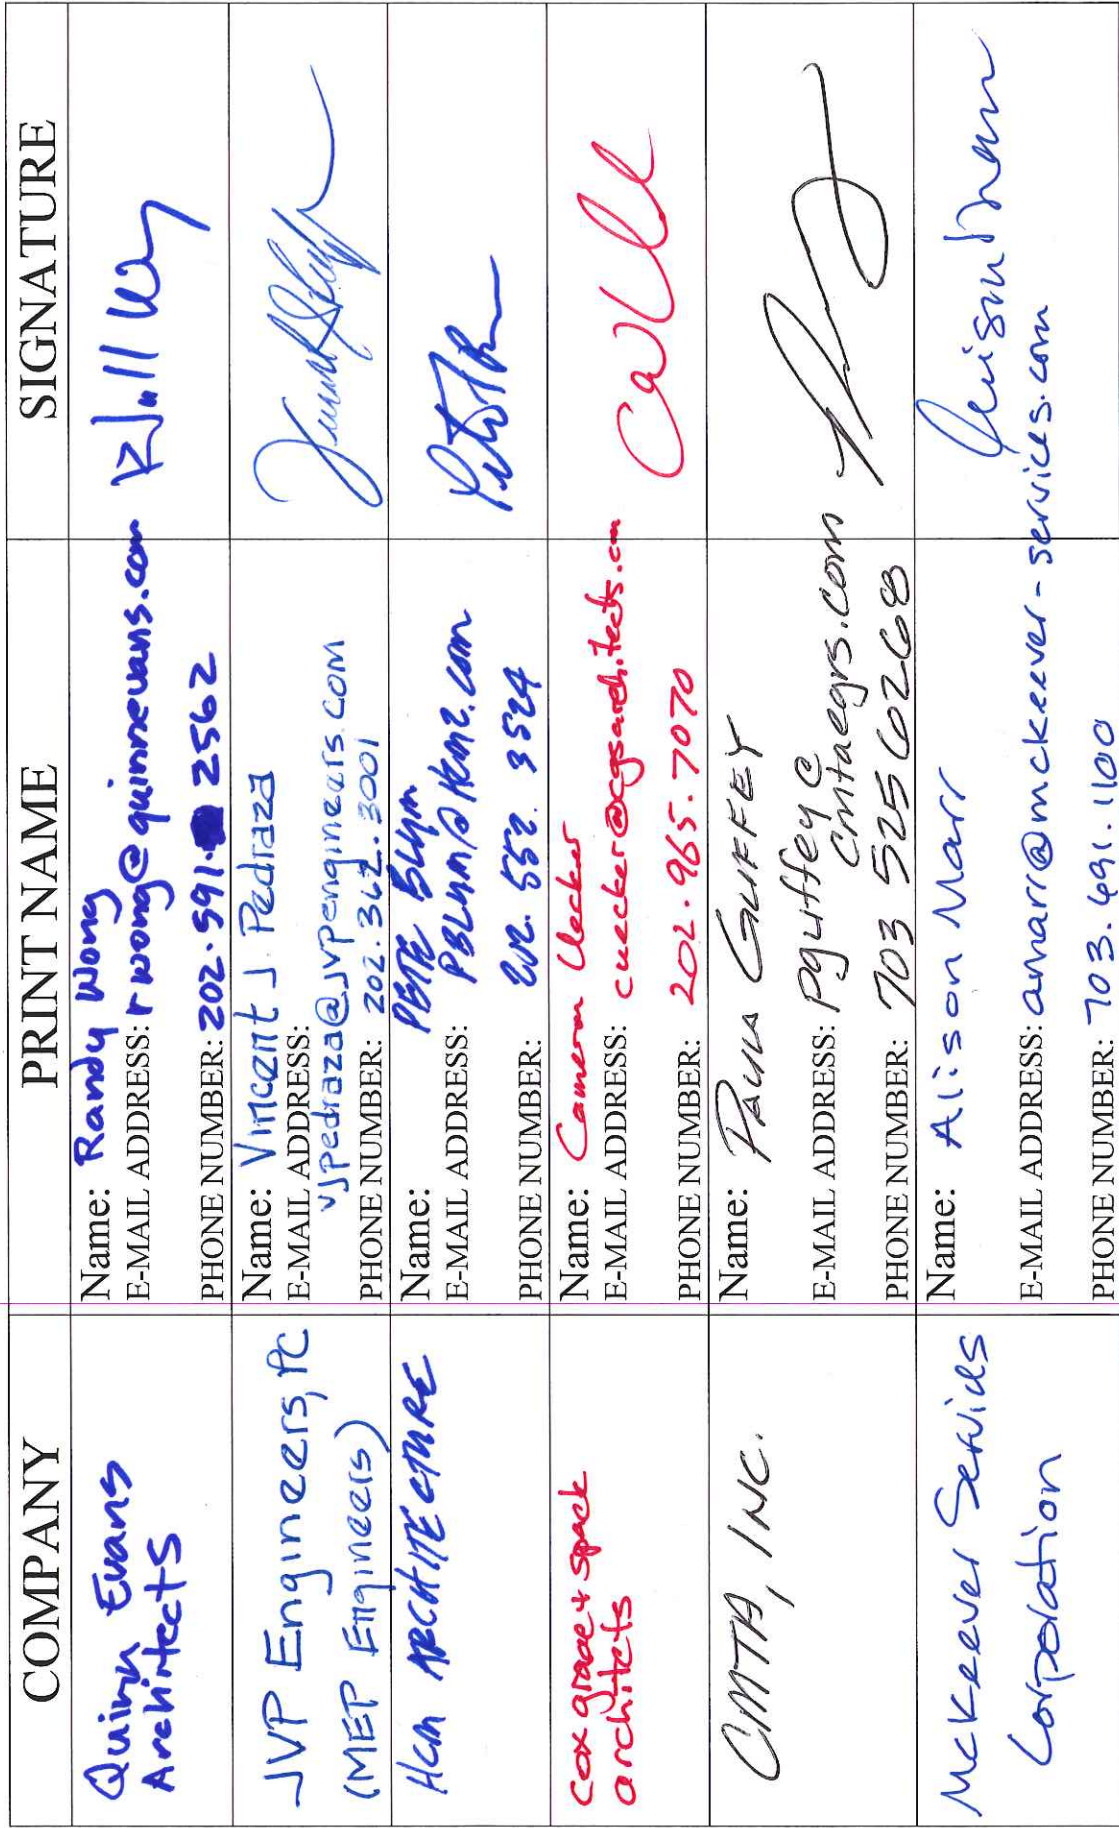 COMPANY PRINT NAME SIGNATURE
Quinn Evans
Architects
Name: Randy Wong
E-MAIL ADDRESS: rwong@quinnevans.com
PHONE NUMBER: 202.591.2562
JVP Engineers, PC
(MEP Engineers)
Name: Vincent J. Pedraza
E-MAIL ADDRESS:
vjpedraza@jvpengineers.com
PHONE NUMBER: 202.362.3001
HCM ARCHITECTURE
Name: PETE
E-MAIL ADDRESS:
PHONE NUMBER: 202. 552. 3524
cox graae + spack
architects
Name: Cameron Uecker
E-MAIL ADDRESS: cuecker@cgsarchitects.com
PHONE NUMBER: 202.965.7070
CMTA, INC.
Name: PAULA GUFFEY
E-MAIL ADDRESS: pguffey@
cmtaegrs.com
PHONE NUMBER: 703 525 0268
McKeever Services
Corporation
Name: Alison Marr
E-MAIL ADDRESS: amarr@mckeever-services.com
PHONE NUMBER: 703.691.1100